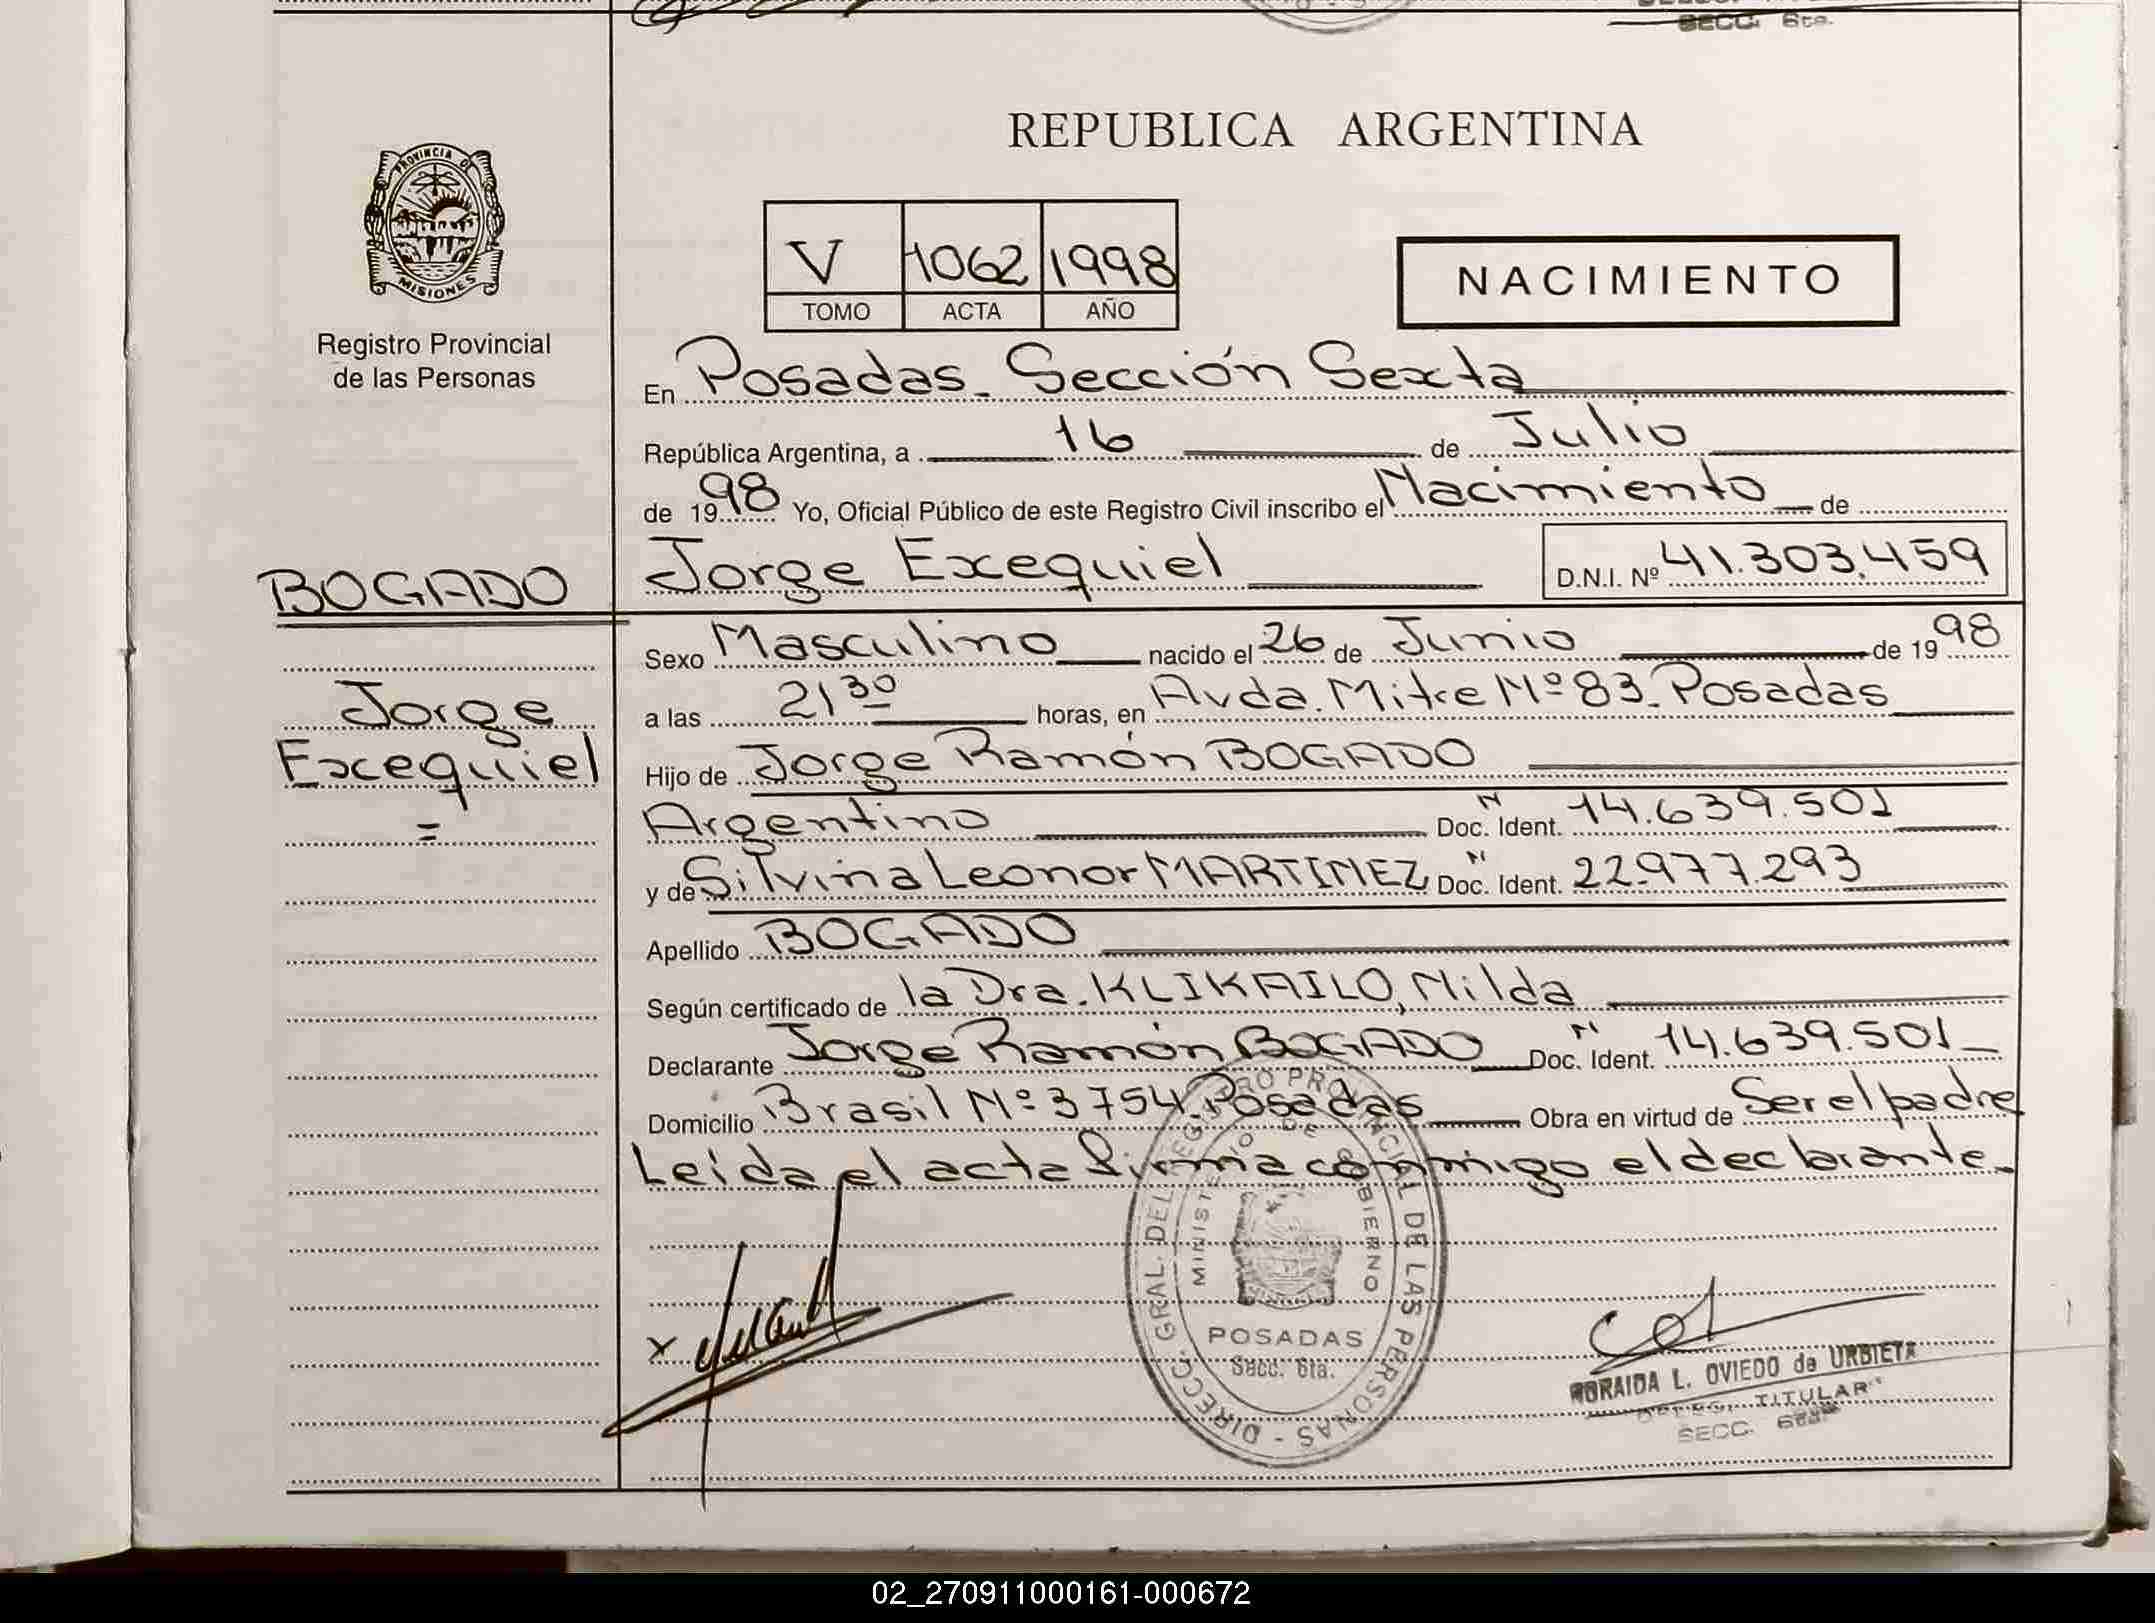 SECC. 6ta.
REPUBLICA ARGENTINA
PROVINCIA DE
MISIONES
Registro Provincial
de las Personas
V 1062 1998
TOMO ACTA AÑO
NACIMIENTO
En Posadas - Sección Sexta
República Argentina, a 16 de Julio
de 1998 Yo, Oficial Público de este Registro Civil inscribo el Nacimiento de
BOGADO
Jorge Exequiel
D.N.I. Nº 41.303.459
Sexo Masculino nacido el 26 de Junio de 1998
Jorge
a las 21 30 horas, en Avda. Mitre Nº 83 - Posadas
Exequiel
Hijo de Jorge Ramón BOGADO
=
Argentino Doc. Ident. Nº 14.639.501
y de Silvina Leonor MARTINEZ Doc. Ident. Nº 22.977.293
Apellido BOGADO
Según certificado de la Dra. KLIKAILO, Nilda
Declarante Jorge Ramón BOGADO Doc. Ident. Nº 14.639.501
Domicilio Brasil Nº 3754 - Posadas Obra en virtud de Ser el padre
Leída el acta firma conmigo el declarante.
DIRECC. GRAL. DEL REGISTRO PROVINCIAL DE LAS PERSONAS -
MINISTERIO DE GOBIERNO
POSADAS
Secc. 6ta.
x
ZORAIDA L. OVIEDO de URBIETA
TITULAR
SECC. 6ta.
02_270911000161-000672